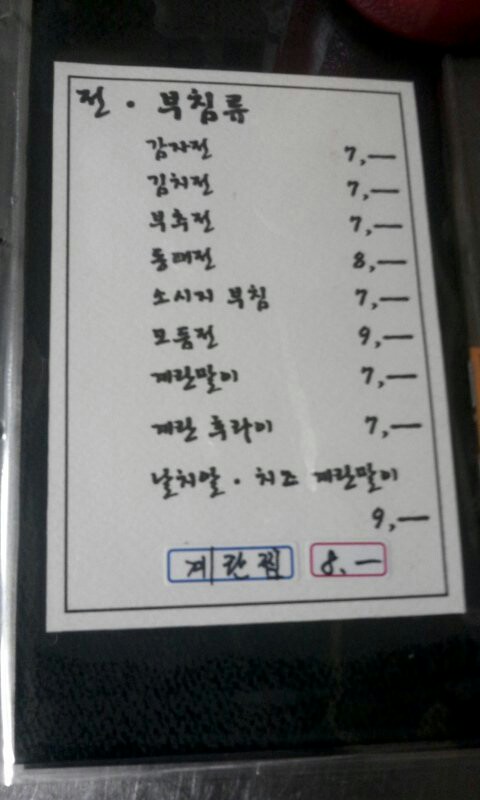 전 · 부침류
감자전 7,—
김치전 7,—
부추전 7,—
동태전 8,—
소시지 부침 7,—
모듬전 9,—
계란말이 7,—
계란 후라이 7,—
날치알 · 치즈 계란말이
9,—
계란찜 8.—